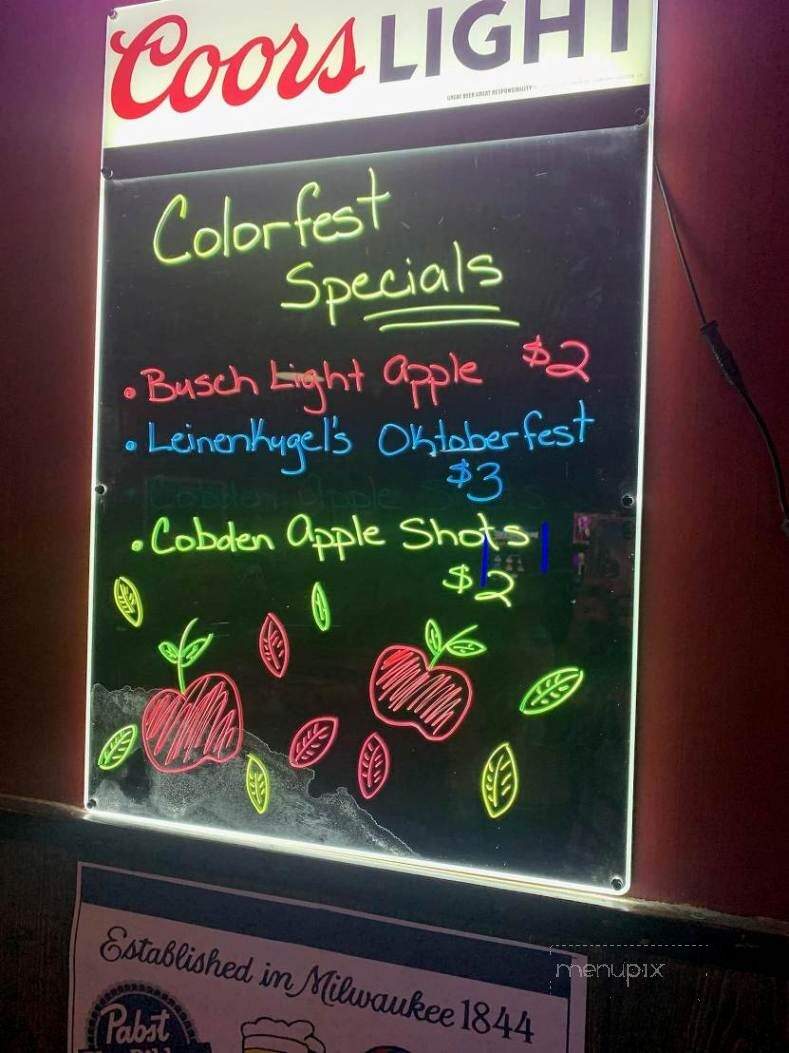 Coors LIGHT
GREAT BEER GREAT RESPONSIBILITY
Colorfest
Specials
• Busch Light Apple $2
• Leinenkugel's Oktoberfest
$3
• Cobden Apple Shots
$2
menupix
Established in Milwaukee 1844
Pabst